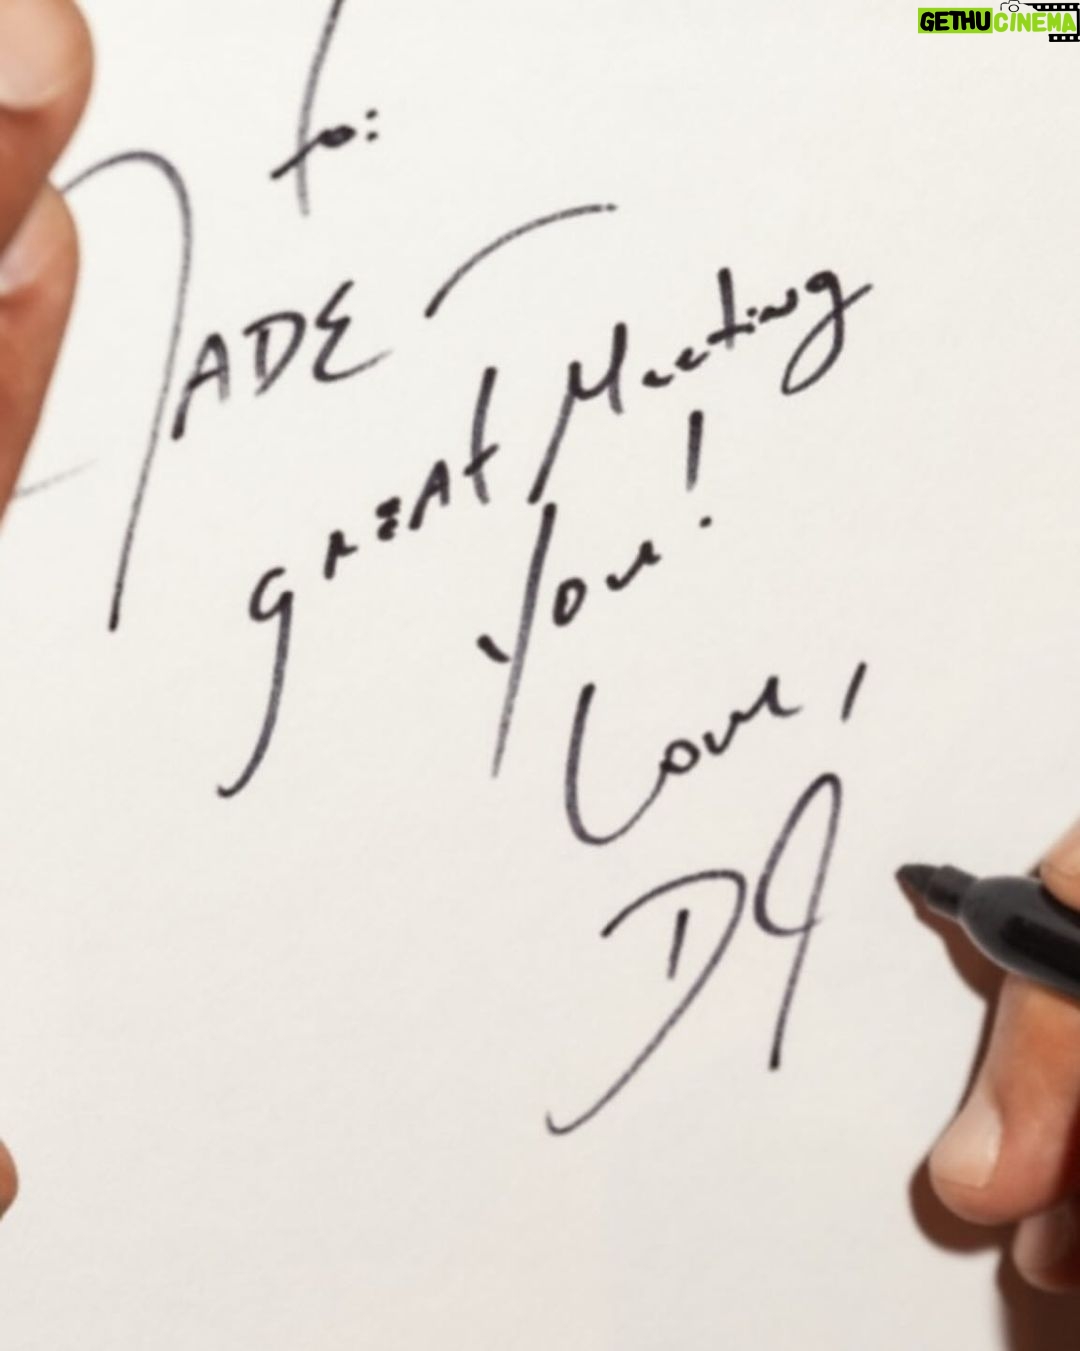 GETHUCINEMA
To:
JADE
GREAT Meeting
You!
Love,
DJ